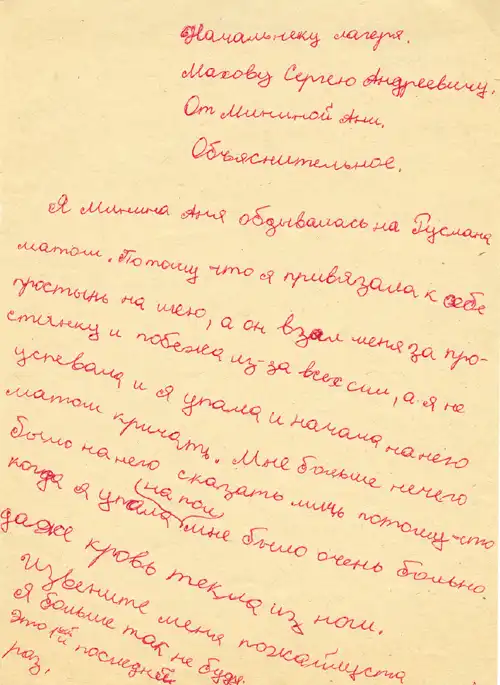 Начальнеку лагеря.
Махову Сергею Андреевичу.
От Мининой Ани.
Объяснительное.
Я Минина Аня обдывалась на Руслана
матом. Потому что я привязала к себе
простынь на шею, а он взял меня за про-
стынку и побежа из-за всех сил, а я не
успевала и я упала и начала на него
матом кричать. Мне больше нечего
было на него сказать лишь потому-что
когда я упала на пол мне было очень больно.
даже кровь текла из ноги.
Извените меня пожайлуста
я больше так не буду
это рай последней
раз.